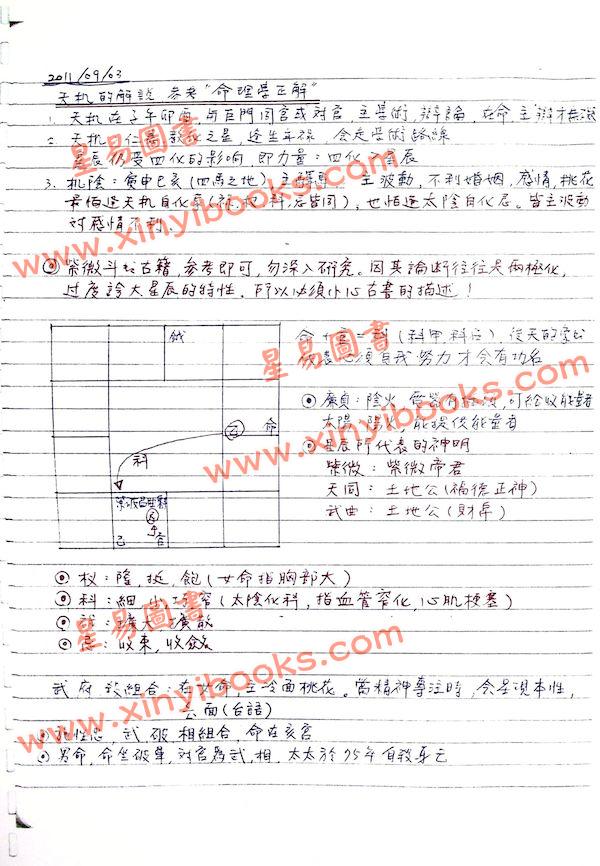 2011/09/03
天机的解說 參考"命理學正解"
1. 天机在子午卯酉,与巨門同宮或对宮,主學術,辯論,在命主辯才
2. 天机: 教
星辰仍受四化的影响,即力量:四化>星辰
3. 机陰:寅申巳亥(四馬之地) 主 主波動,不利婚姻,感情,桃花
最怕逢天机自化 (祿,权,科,忌皆同),也怕逢太陰自化忌。皆主波動
对感情不利。
◎紫微斗数古籍,參考即可,勿深入研究。因其論断往往是两極化,
过度誇大星辰的特性。所以必須小心古書的描述!
鉞
命 科(科甲科名)
必須自我努力才会有功名
◎廉貞:陰火,
太陽:陽火,能提供能量者
乙 命
科
◎星辰所代表的神明
紫微:紫微帝君
天同:土地公(福德正神)
武曲:土地公(財帛)
紫破
己 官
◎权:隆,挺,飽(女命指胸部大)
◎科:細,小,窄(太陰化科,指血管窄化,心肌梗塞)
◎祿:擴大,擴散
◎忌:收束,收斂
武府殺組合:在女命,主冷面桃花。當精神專注時,会呈現本性,
面(台語)
武破相組合,命在亥宮
◎男命,命坐破軍,对宮為武,相,太太於95年自殺身亡
星易圖書
www.xinyibooks.com
星易圖書
www.xinyibooks.com
星易圖書
www.xinyibooks.com